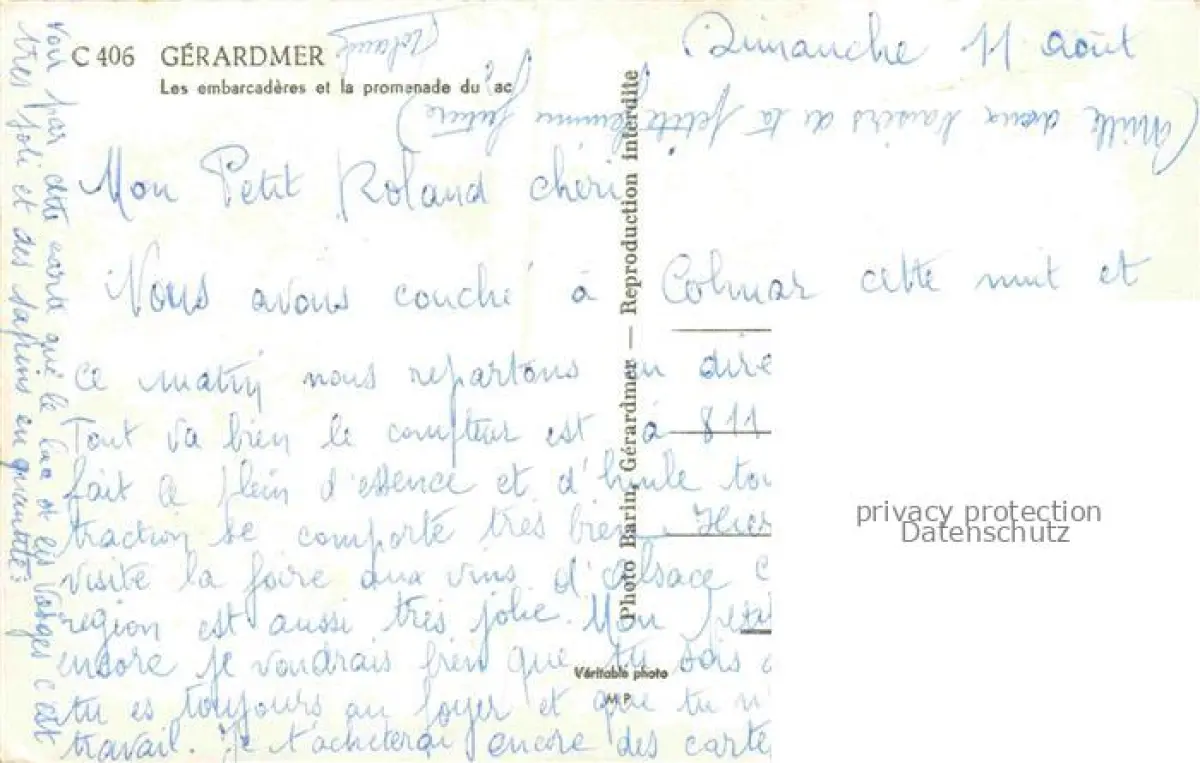 C 406 GÉRARDMER
Les embarcadères et la promenade du ac
Dimanche 11 août
(Mille doux baisers de ta petite femme future)
Roland
Mon Petit Roland chéri
Nous avons couché à Colmar cette nuit et
ce matin nous repartons en dire
Tout va bien le compteur est à 811
fait le plein d'essence et d'huile tou
traction se comporte très bien. Hier
visité la foire aux vins d'Alsace
région est aussi très jolie. Mon
encore je voudrais bien que tu sois
tu es toujours au foyer et que tu n'
travail. Je t'achèterai encore des carte
voir par cette carte que le lac et les Vosges c'est
très joli et des sapins en quantité.
Photo Barin, Gérardmer — Reproduction interdite
Véritable photo
M P
privacy protection
Datenschutz